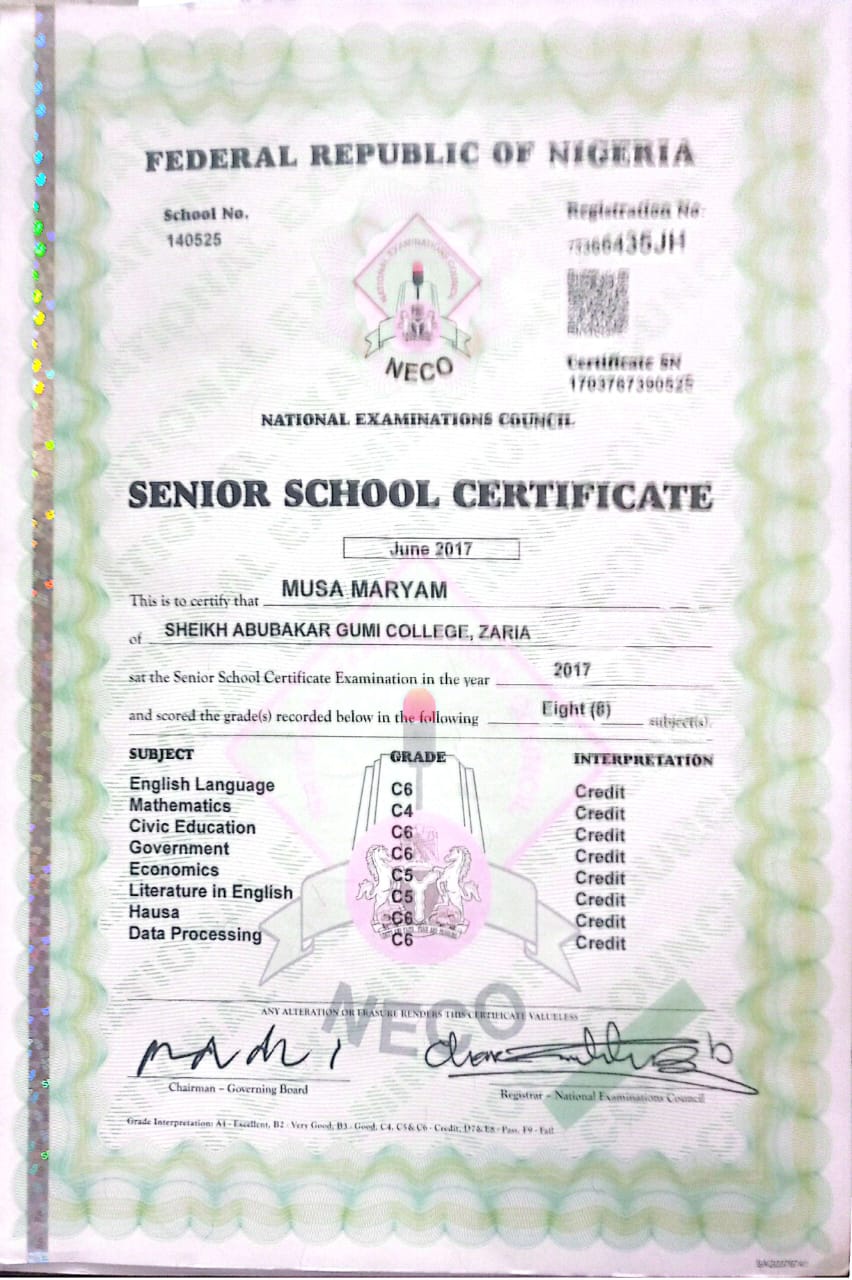 FEDERAL REPUBLIC OF NIGERIA
School No.
140525
Registration No:
NATIONAL EXAMINATIONS COUNCIL
NECO
Certificate SN
1703767390525
NATIONAL EXAMINATIONS COUNCIL
SENIOR SCHOOL CERTIFICATE
June 2017
This is to certify that MUSA MARYAM
of SHEIKH ABUBAKAR GUMI COLLEGE, ZARIA
sat the Senior School Certificate Examination in the year 2017
and scored the grade(s) recorded below in the following Eight (8) subject(s).
SUBJECT GRADE INTERPRETATION
English Language C6 Credit
Mathematics C4 Credit
Civic Education C6 Credit
Government C6 Credit
Economics C5 Credit
Literature in English C5 Credit
Hausa C6 Credit
Data Processing C6 Credit
NECO
ANY ALTERATION OR ERASURE RENDERS THIS CERTIFICATE VALUELESS
Chairman – Governing Board
Registrar – National Examinations Council
Grade Interpretation: A1 - Excellent, B2 - Very Good, B3 - Good, C4, C5 & C6 - Credit, D7 & E8 - Pass, F9 - Fail